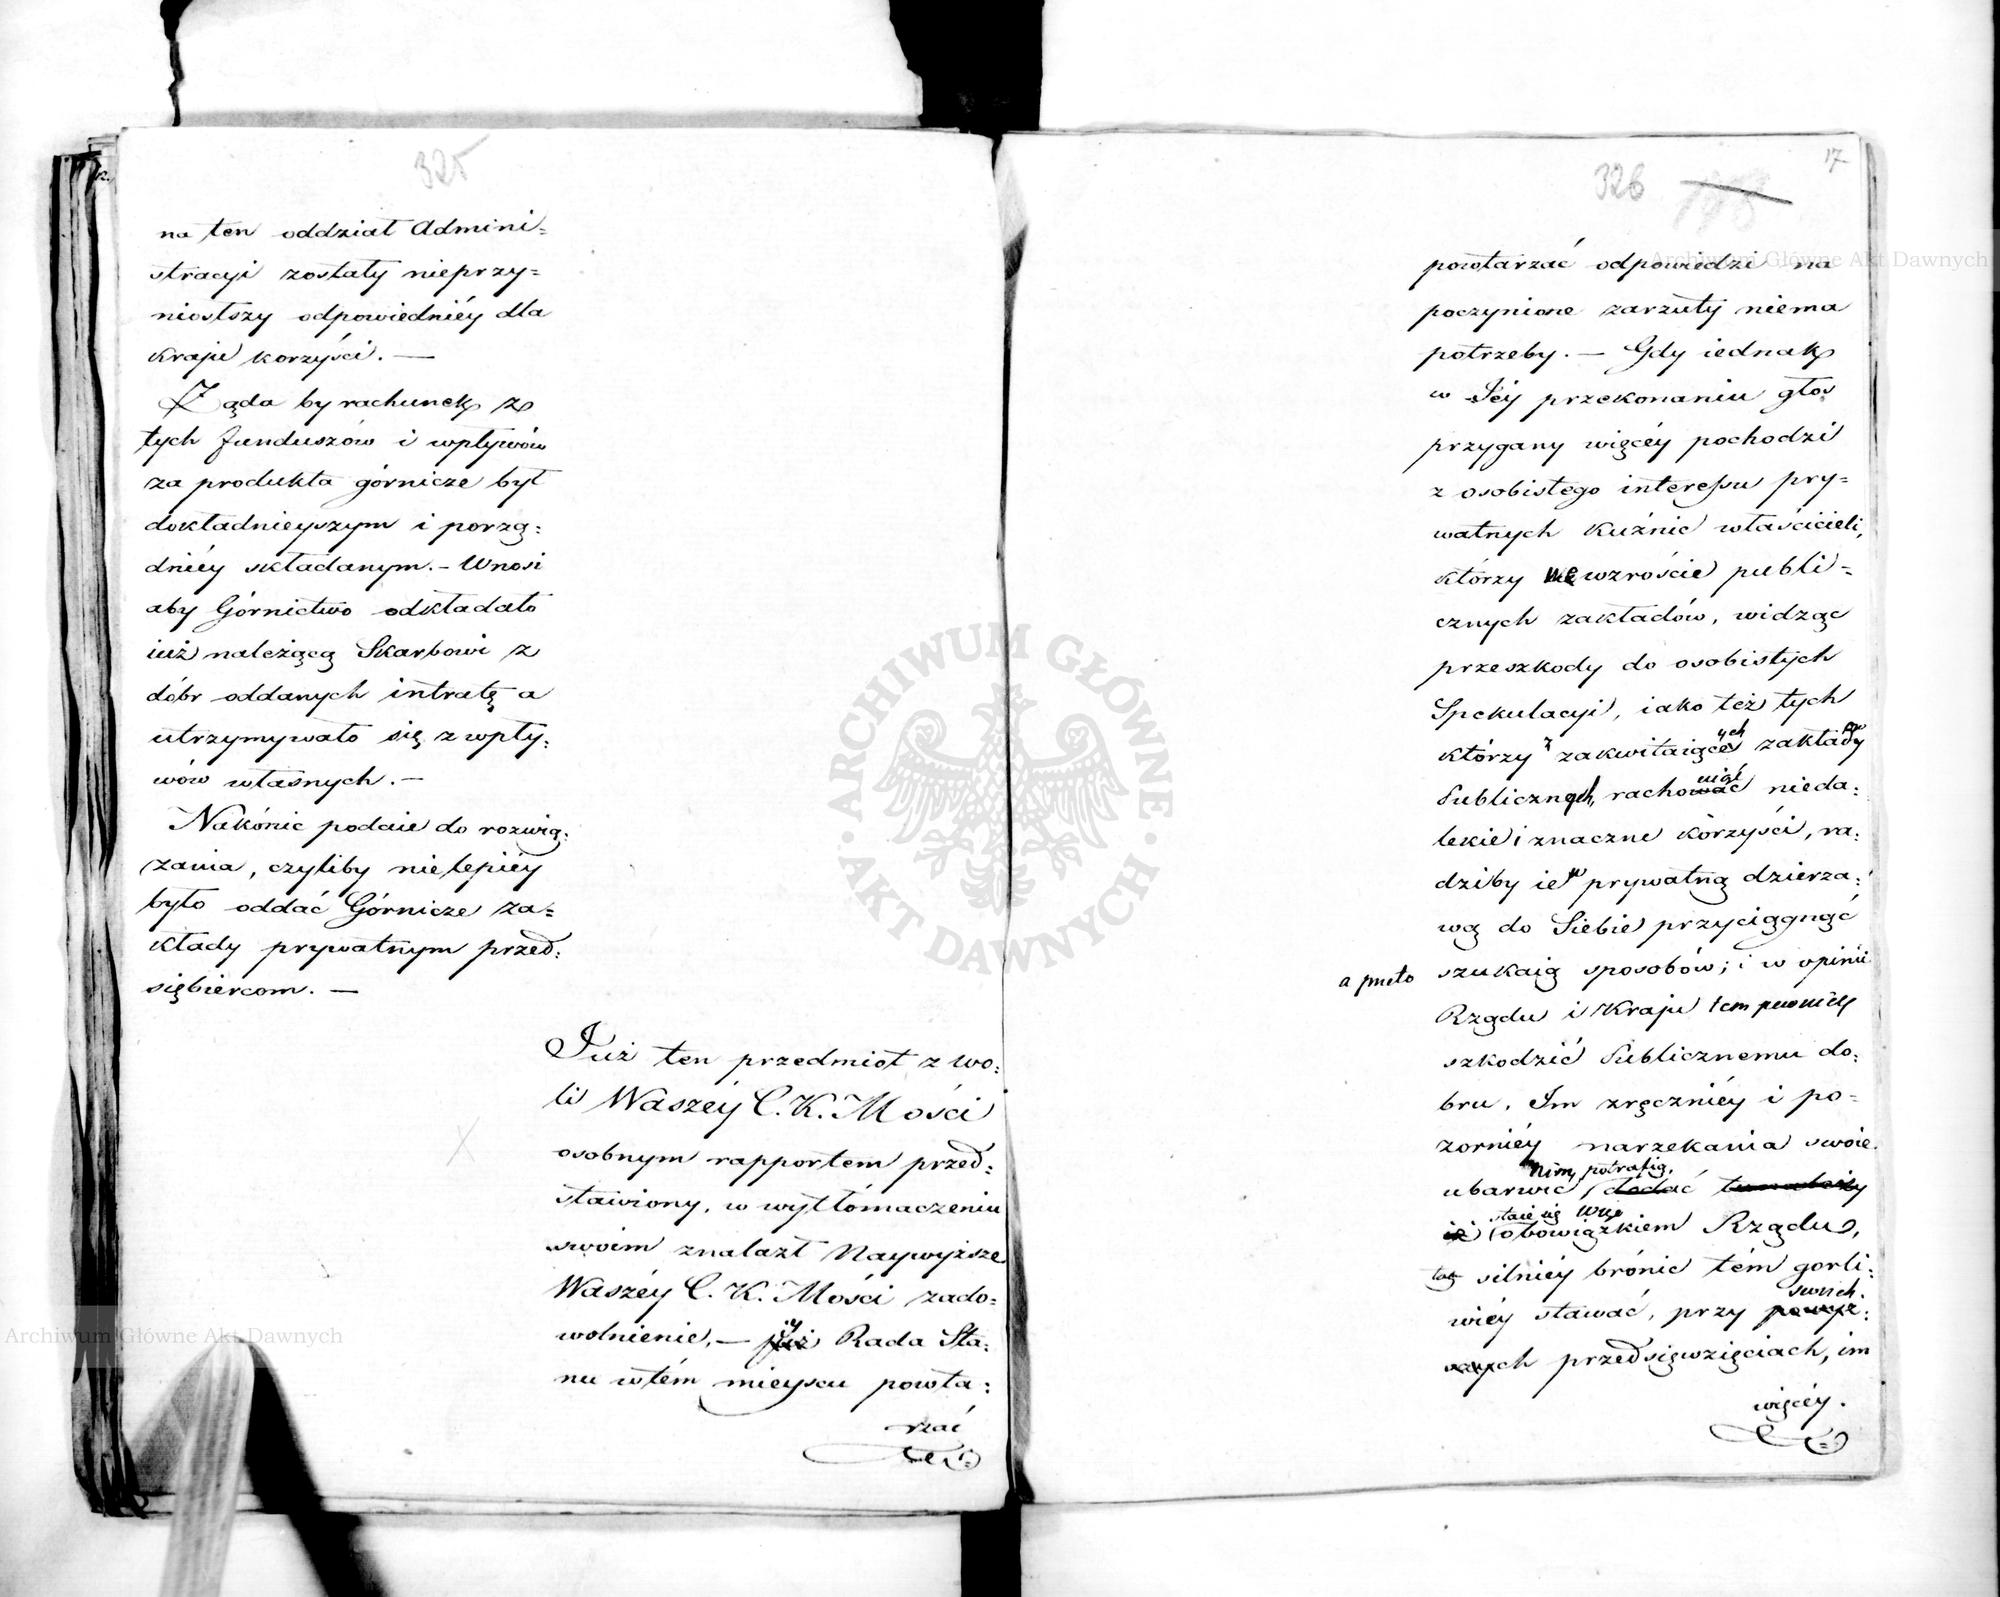 325
na ten oddział Admini=
stracyi zostały nieprzy=
niosłszy odpowiedniéy dla
kraju korzyści. —
Ząda by rachunek z
tych funduszów i wpływów
za produkta górnicze był
dokładnieyszym i porzą=
dniéy składanym. – Wnosi
aby Górnictwo odkładało
iuż należącą Skarbowi z
dóbr oddanych intratę a
utrzymywało się z wpły=
wów własnych. —
Nakónic podaie do rozwią=
zania, czyliby nielepiéy
było oddać Górnicze za=
kłady prywatnym przed=
siębiercom. —
Już ten przedmiot z wo=
li Waszéy C. K. Mości
osobnym rapportem przed=
stawiony, w wytłómaczeniu
swoim znalazł Naywyższe
Waszéy C. K. Mości zado=
wolnienie, — Rada Sta=
nu w tém mieyscu powta=
rzać
326
17
powtarzać odpowiedzi na
poczynione zarzuty niema
potrzeby. — Gdy iednak
w Jéy przekonaniu głos
przygany więcéy pochodzi
z osobistego interessu pry=
watnych kuźnic właścicieli,
którzy we wzroście publi=
cznych zakładów, widząc
przeszkody do osobistych
Spekulacyi, iako też tych
którzy z zakwitaiących zakładów
Publicznych, rachować nieda=
lekie i znaczne kórzyści, ra=
dziby ie prywatną dzierza=
wą do Siebie przyciągnąć
a przeto szukaią sposobów; i w opinii
Rządu i Kraju tem pewniéy
szkodzić Publicznemu do=
bru. Im zręczniéy i po=
zorniéy narzekania swoie
potrafią,
ubarwić, dodać
staie się więc
obowiązkiem Rządu,
silniéy brónić tém gorli=
swych
wiéy stawać, przy
przedsięwzięciach, im
więcéy.
ARCHIWUM GŁÓWNE
AKT DAWNYCH
Archiwum Główne Akt Dawnych
Archiwum Główne Akt Dawnych